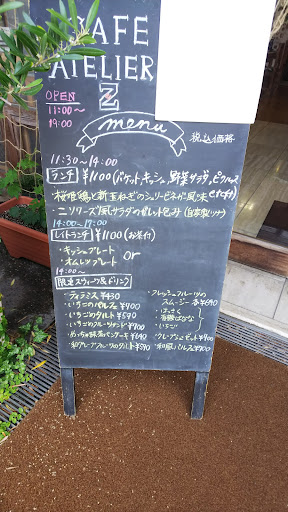 CAFE
ATELIER
Z
OPEN
11:00〜
19:00
menu
税込価格
11:30〜14:00
ランチ ¥1100(バゲット、キッシュ、野菜サラダ、ピクルス
・桜姫鶏と新玉ねぎのシュリビネガ風味
・ニソワーズ風(サラダのガレット包み)(自家製ツナ)
14:00〜17:00
レイトランチ ¥1100(お茶付)
・キッシュプレート or
・オムレツプレート
14:00〜
限定スウィーツ&ドリンク
・ティラミス ¥430
・いちごのパルフェ ¥900
・いちごのタルト ¥590
・いちごのフルーツサンド ¥900
・めっちゃ抹茶パンケーキ ¥640
・和グレープフルーツのタルト ¥590
・フレッシュフルーツの
スムージー 各¥690
・はっさく
・いちご
・クレープシュゼット ¥900
・和風パルフェ ¥900